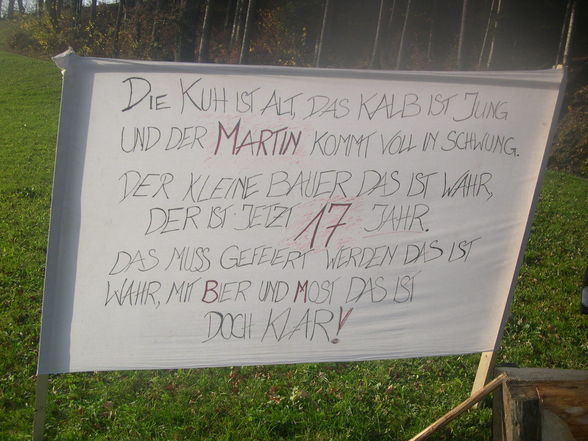 DIE KUH IST ALT, DAS KALB IST JUNG
UND DER MARTIN KOMMT VOLL IN SCHWUNG.
DER KLEINE BAUER DAS IST WAHR,
DER IST JETZT 17 JAHR.
DAS MUSS GEFEIERT WERDEN DAS IST
WAHR, MIT BIER UND MOST DAS IST
DOCH KLAR!